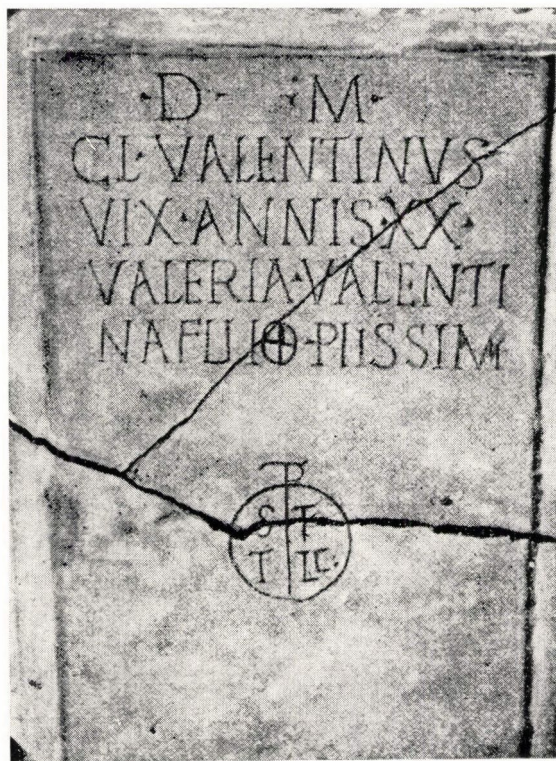 ·D· ·M·
CL·VALENTINVS
VIX·ANNIS·XX·
VALERIA·VALENTI
NAFILIO·PIISSIM
S T
T LC·